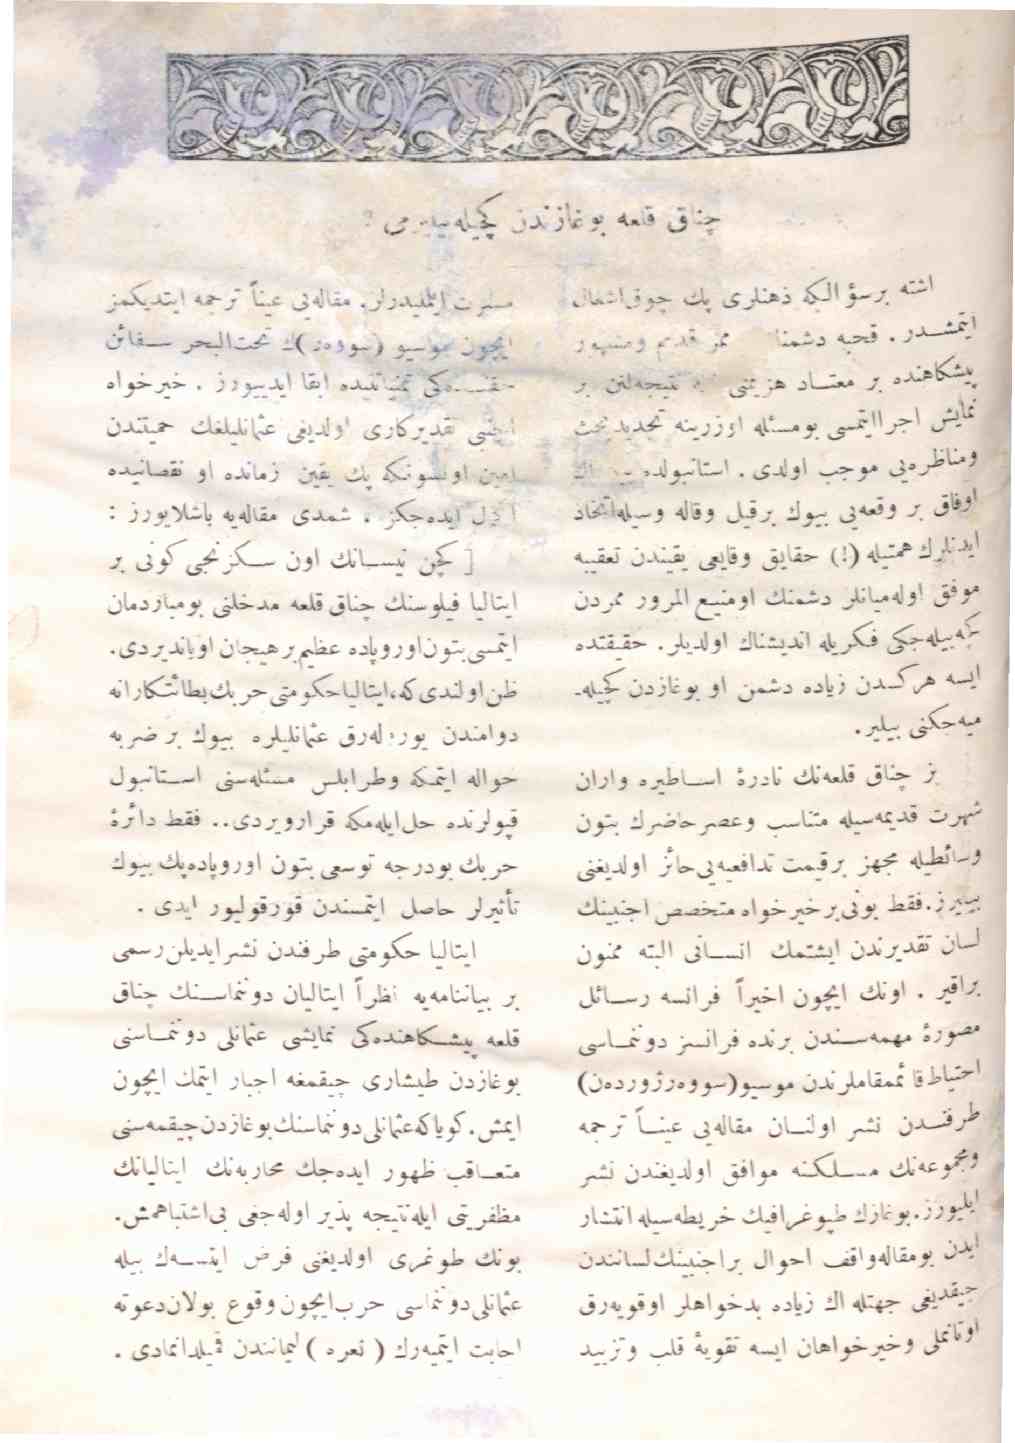 چناق قلعه بوغازندن كچیله بیلیرمی ؟
اشته برسؤالكه ذهنلری پك چوق اشغال
ایتمشدر . قحبه دشمنك ممر قدیم ومشهور
پیشكاهنده بر معتاد هزیمتی نتیجه‌لنن بر
نمایش اجرا ایتمسی بومسئله اوزرینه تجدید بحث
ومناظره‌یی موجب اولدی . استانبولده اك
اوفاق بر وقعه‌یی بیوك برقیل وقاله وسیله اتخاذ
ایدنلرك همتیله (!) حقایق وقایعی یقیندن تعقیبه
موفق اوله‌میانلر دشمنك اومنیع المرور ممردن
كچه‌بیله‌جكی فكریله اندیشناك اولدیلر . حقیقتده
ایسه هركسدن زیاده دشمن او بوغازدن كچیله‌ـ
میه‌جكنی بیلیر .
بز چناق قلعه‌نك نادرهٔ اساطیره واران
شهرت قدیمه‌سیله متناسب وعصر حاضرك بتون
وسائطیله مجهز برقیمت تدافعیه‌یی حائز اولدیغنی
بیلیرز . فقط بونی برخیرخواه متخصص اجنبینك
لسان تقدیرندن ایشتمك انسانی البته ممنون
براقیر . اونك ایچون اخیراً فرانسه رسائل
مصورهٔ مهمه‌سندن برنده فرانسز دوننماسی
احتیاط قائممقاملرندن موسیو (سووه‌رژوردەن)
طرفندن نشر اولنان مقاله‌یی عیناً ترجمه
ومجموعه‌نك مسلكنه موافق اولدیغندن نشر
ایلیورز . بوغازك طپوغرافیك خریطه‌سیله انتشار
ایدن بومقاله واقف احوال براجنبینك لساندن
چیقدیغی جهتله اك زیاده بدخواهلر اوقویه‌رق
اوتانملی وخیرخواهان ایسه تقویهٔ قلب وتزیید
مسرت ایلملیدرلر . مقاله‌یی عیناً ترجمه ایتدیكمز
ایچون موسیو (سووه‌ر)ك تحت البحر سفائن
حقنده‌كی تمنیاتنیده ابقا ایدییورز . خیرخواه
اجنبی تقدیركاری اولدیغی عثمانلیلغك حمیتندن
امین اولسونكه پك یقین زمانده او نقصانیده
اكمال ایده‌جكز . شمدی مقاله‌یه باشلایورز :
[ كچن نیسانك اون سكزنجی كونی بر
ایتالیا فیلوسنك چناق قلعه مدخلنی بومباردمان
ایتمسی بتون اوروپاده عظیم برهیجان اویاندیردی .
ظن اولندی كه ، ایتالیا حكومتی حربك بطائتكارانه
دوامندن یوریله‌رق عثمانلیلره بیوك بر ضربه
حواله ایتمكه وطرابلس مسئله‌سنی استانبول
قپولرنده حل ایله‌مكه قرارویردی .. فقط دائرهٔ
حربك بودرجه توسعی بتون اوروپاده پك بیوك
تأثیرلر حاصل ایتمسندن قورقولیور ایدی .
ایتالیا حكومتی طرفندن نشر ایدیلن رسمی
بر بیاننامه‌یه نظراً ایتالیان دوننماسنك چناق
قلعه پیشكاهنده‌كی نمایشی عثمانلی دوننماسنی
بوغازدن طیشاری چیقمغه اجبار ایتمك ایچون
ایمش . كویاكه عثمانلی دوننماسنك بوغازدن چیقمه‌سنی
متعاقب ظهور ایده‌جك محاربه‌نك ایتالیانك
مظفریتی ایله نتیجه پذیر اوله‌جغی بی‌اشتباهمش .
بونك طوغری اولدیغنی فرض ایتسه‌ك بیله
عثمانلی دوننماسی حرب ایچون وقوع بولان دعوته
اجابت ایتمیه‌رك ( نعره ) لیمانندن قیلدانمادی .